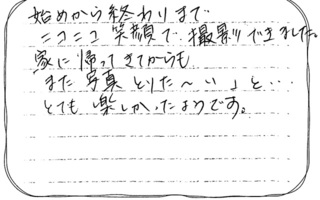 始めから終わりまで
ニコニコ笑顔で撮影できました。
家に帰ってきてからも
また写真とりた～い」と･･･
とても楽しかったようです。